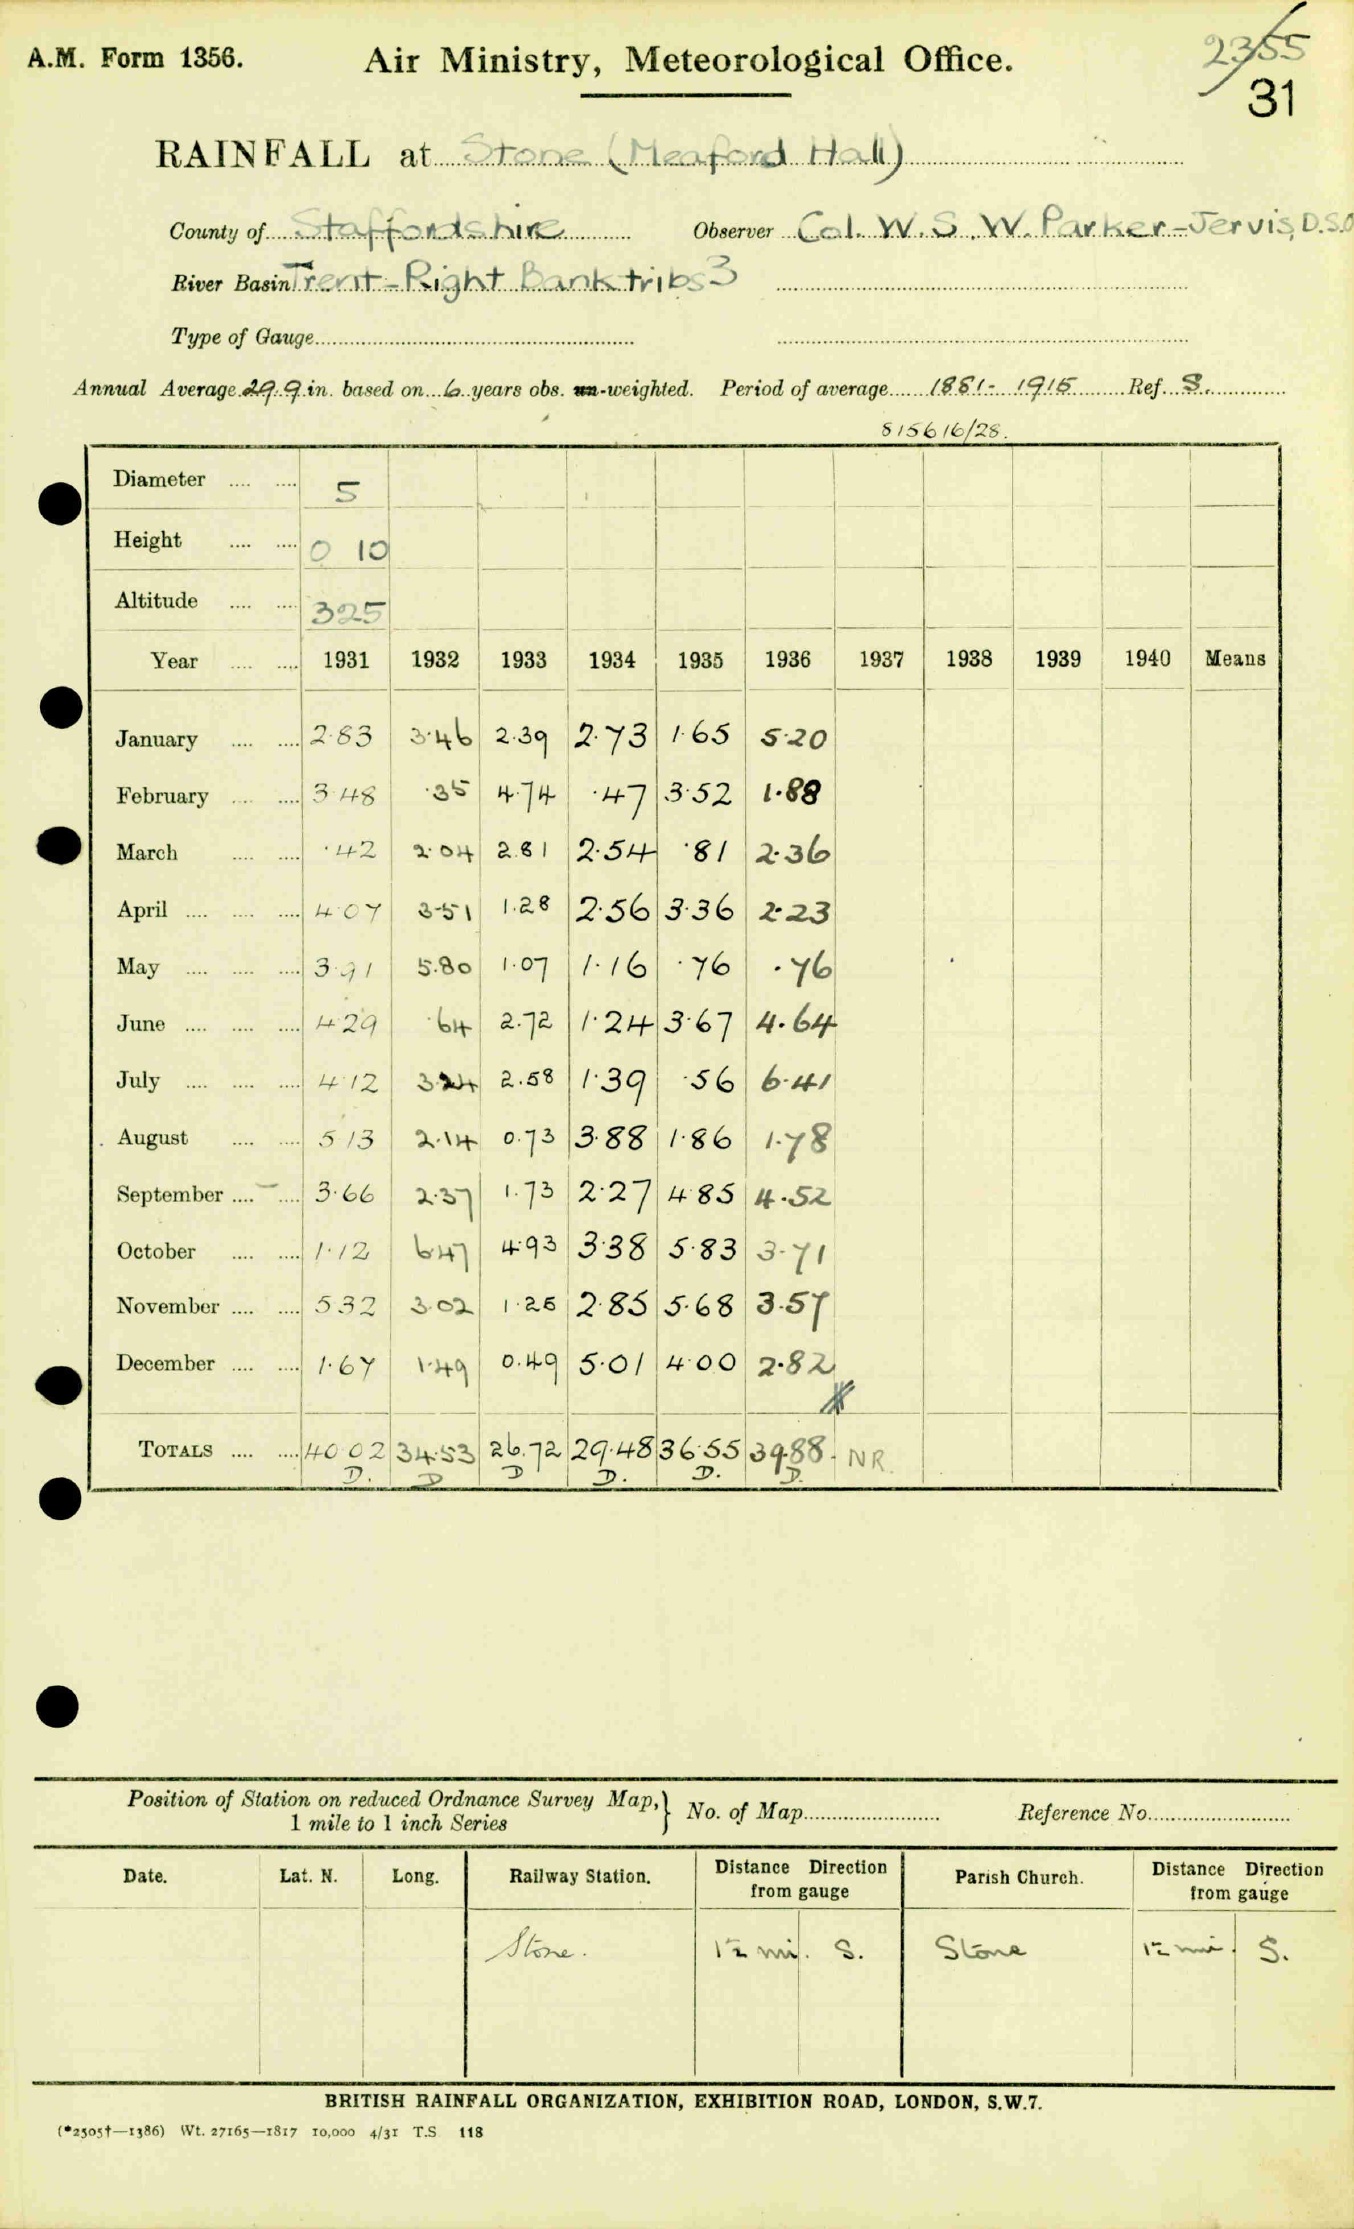 A.M. Form 1356.
Air Ministry, Meteorological Office.
2355
31
RAINFALL at Stone (Meaford Hall)
County of Staffordshire Observer Col. W.S.W. Parker-Jervis, D.S.O
River Basin Trent-Right Bank tribs 3
Type of Gauge
Annual Average 29.9 in. based on 6 years obs. un-weighted. Period of average 1881- 1915 Ref. S.
815616/28.
Diameter 5
Height 0 10
Altitude 325
Year 1931 1932 1933 1934 1935 1936 1937 1938 1939 1940 Means
January 2·83 3·46 2.39 2·73 1·65 5·20
February 3·48 ·35 4.74 ·47 3·52 1·88
March ·42 2·04 2.81 2·54 ·81 2·36
April 4·07 3·51 1.28 2·56 3·36 2·23
May 3·91 5·80 1·07 1·16 ·76 ·76
June 4·29 ·64 2.72 1·24 3·67 4·64
July 4·12 3·24 2.58 1·39 ·56 6·41
August 5·13 2·14 0.73 3·88 1·86 1·78
September 3·66 2·37 1.73 2·27 4·85 4·52
October 1·12 6·47 4·93 3·38 5·83 3·71
November 5·32 3·02 1·25 2·85 5·68 3·57
December 1·67 1·49 0.49 5·01 4·00 2·82
TOTALS 40·02 34·53 26.72 29·48 36·55 39·88 NR
D. D D D. D. D.
Position of Station on reduced Ordnance Survey Map, 1 mile to 1 inch Series } No. of Map Reference No.
Date. Lat. N. Long. Railway Station. Distance Direction from gauge Parish Church. Distance Direction from gauge
Stone. 1½ mi. S. Stone 1½ mi. S.
BRITISH RAINFALL ORGANIZATION, EXHIBITION ROAD, LONDON, S.W.7.
(*2505†—1386) Wt. 27165—1817 10,000 4/31 T.S 118